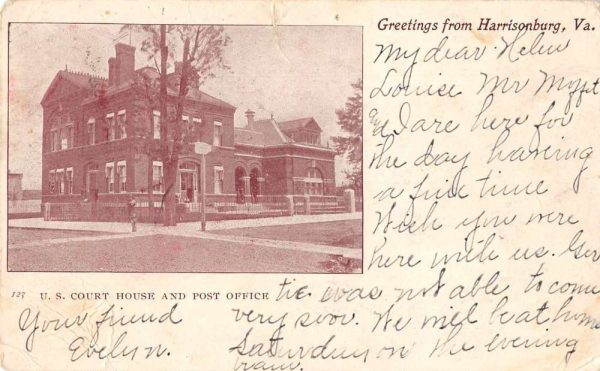 Greetings from Harrisonburg, Va.
My dear Helen
Louise Mr Moffit
and I are here for
the day having
a fine time
Wish you were
here with us. Ger
tie was not able to come
very soon. We will be at home
Saturday on the evening
train.
Your friend
Evelyn.
127 U. S. COURT HOUSE AND POST OFFICE